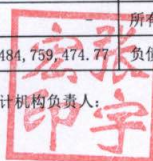 所有
484,759,474.77 负债
计机构负责人：
张宇
宏印